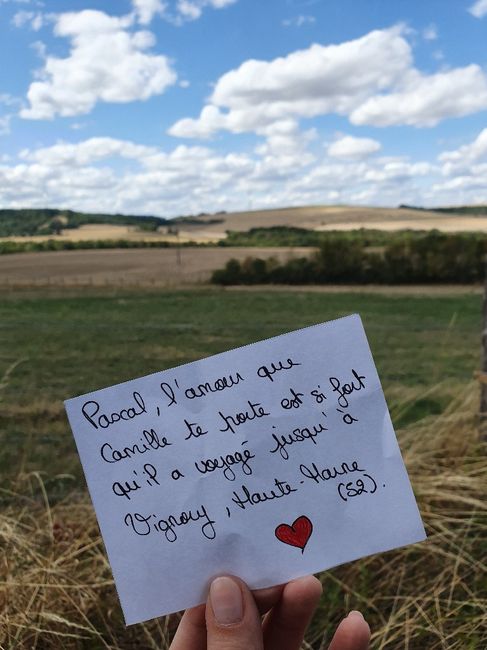 Pascal, l'amour que
Camille te porte est si fort
qu'il a voyagé jusqu'à
Vignory, Haute-Marne
(52).